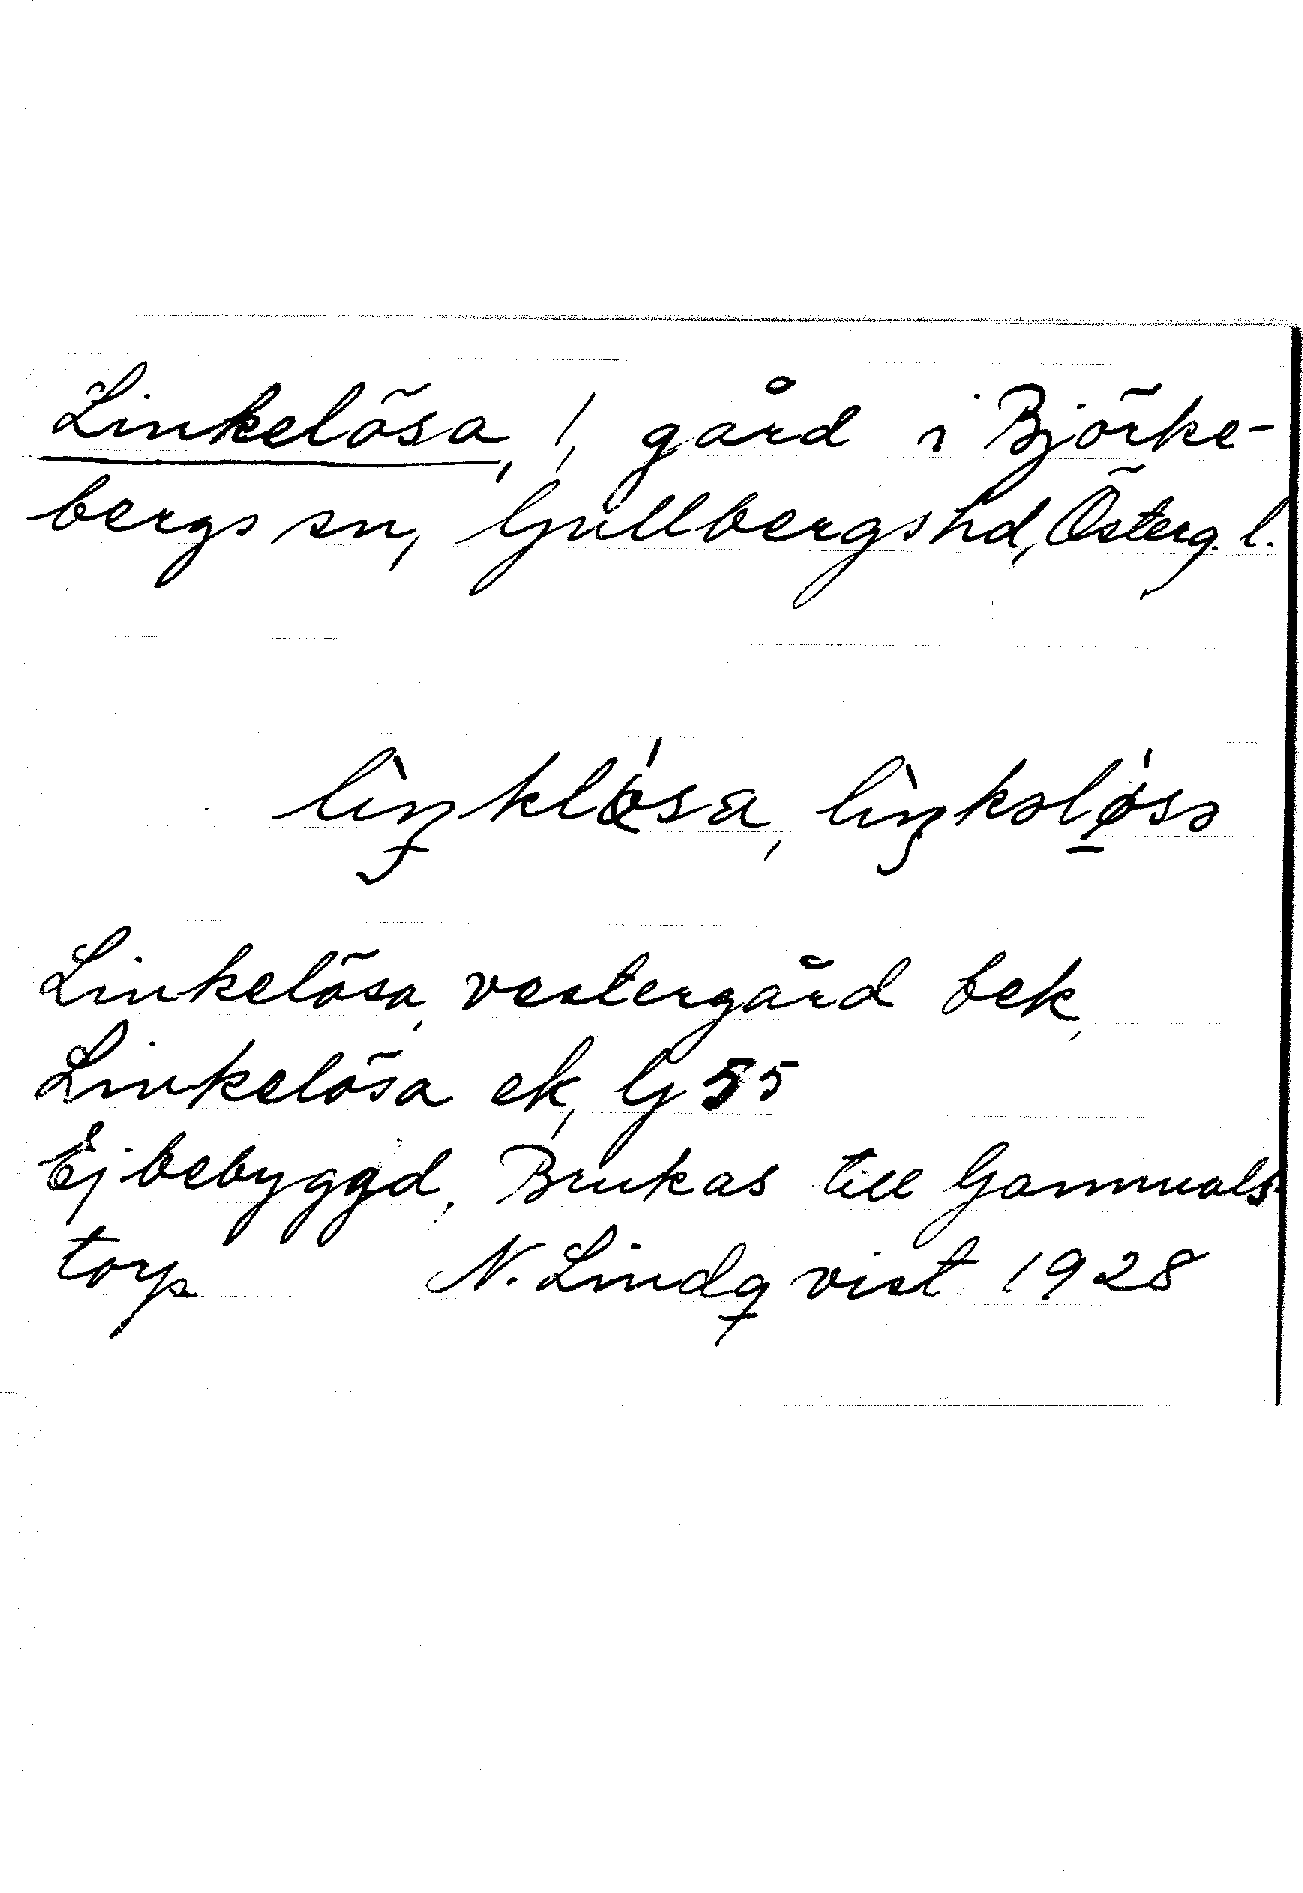 Linkelösa, 1, gård i Björke-
bergs sn, Gullbergs hd, Österg. l.
lìŋklǿsa, lìŋkəlǿ̱sə
Linkelösa, vestergård bek,
Linkelösa ek, G 55
Ej bebyggd, Brukas till Gammals-
torp N. Lindqvist 1928